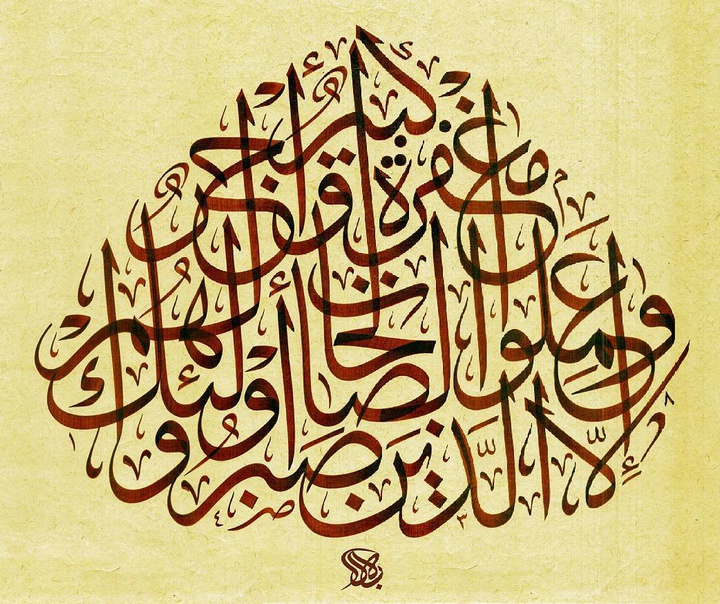 إلا الذين صبروا
وعملوا الصالحات أولئك لهم
مغفرة وأجر كبير